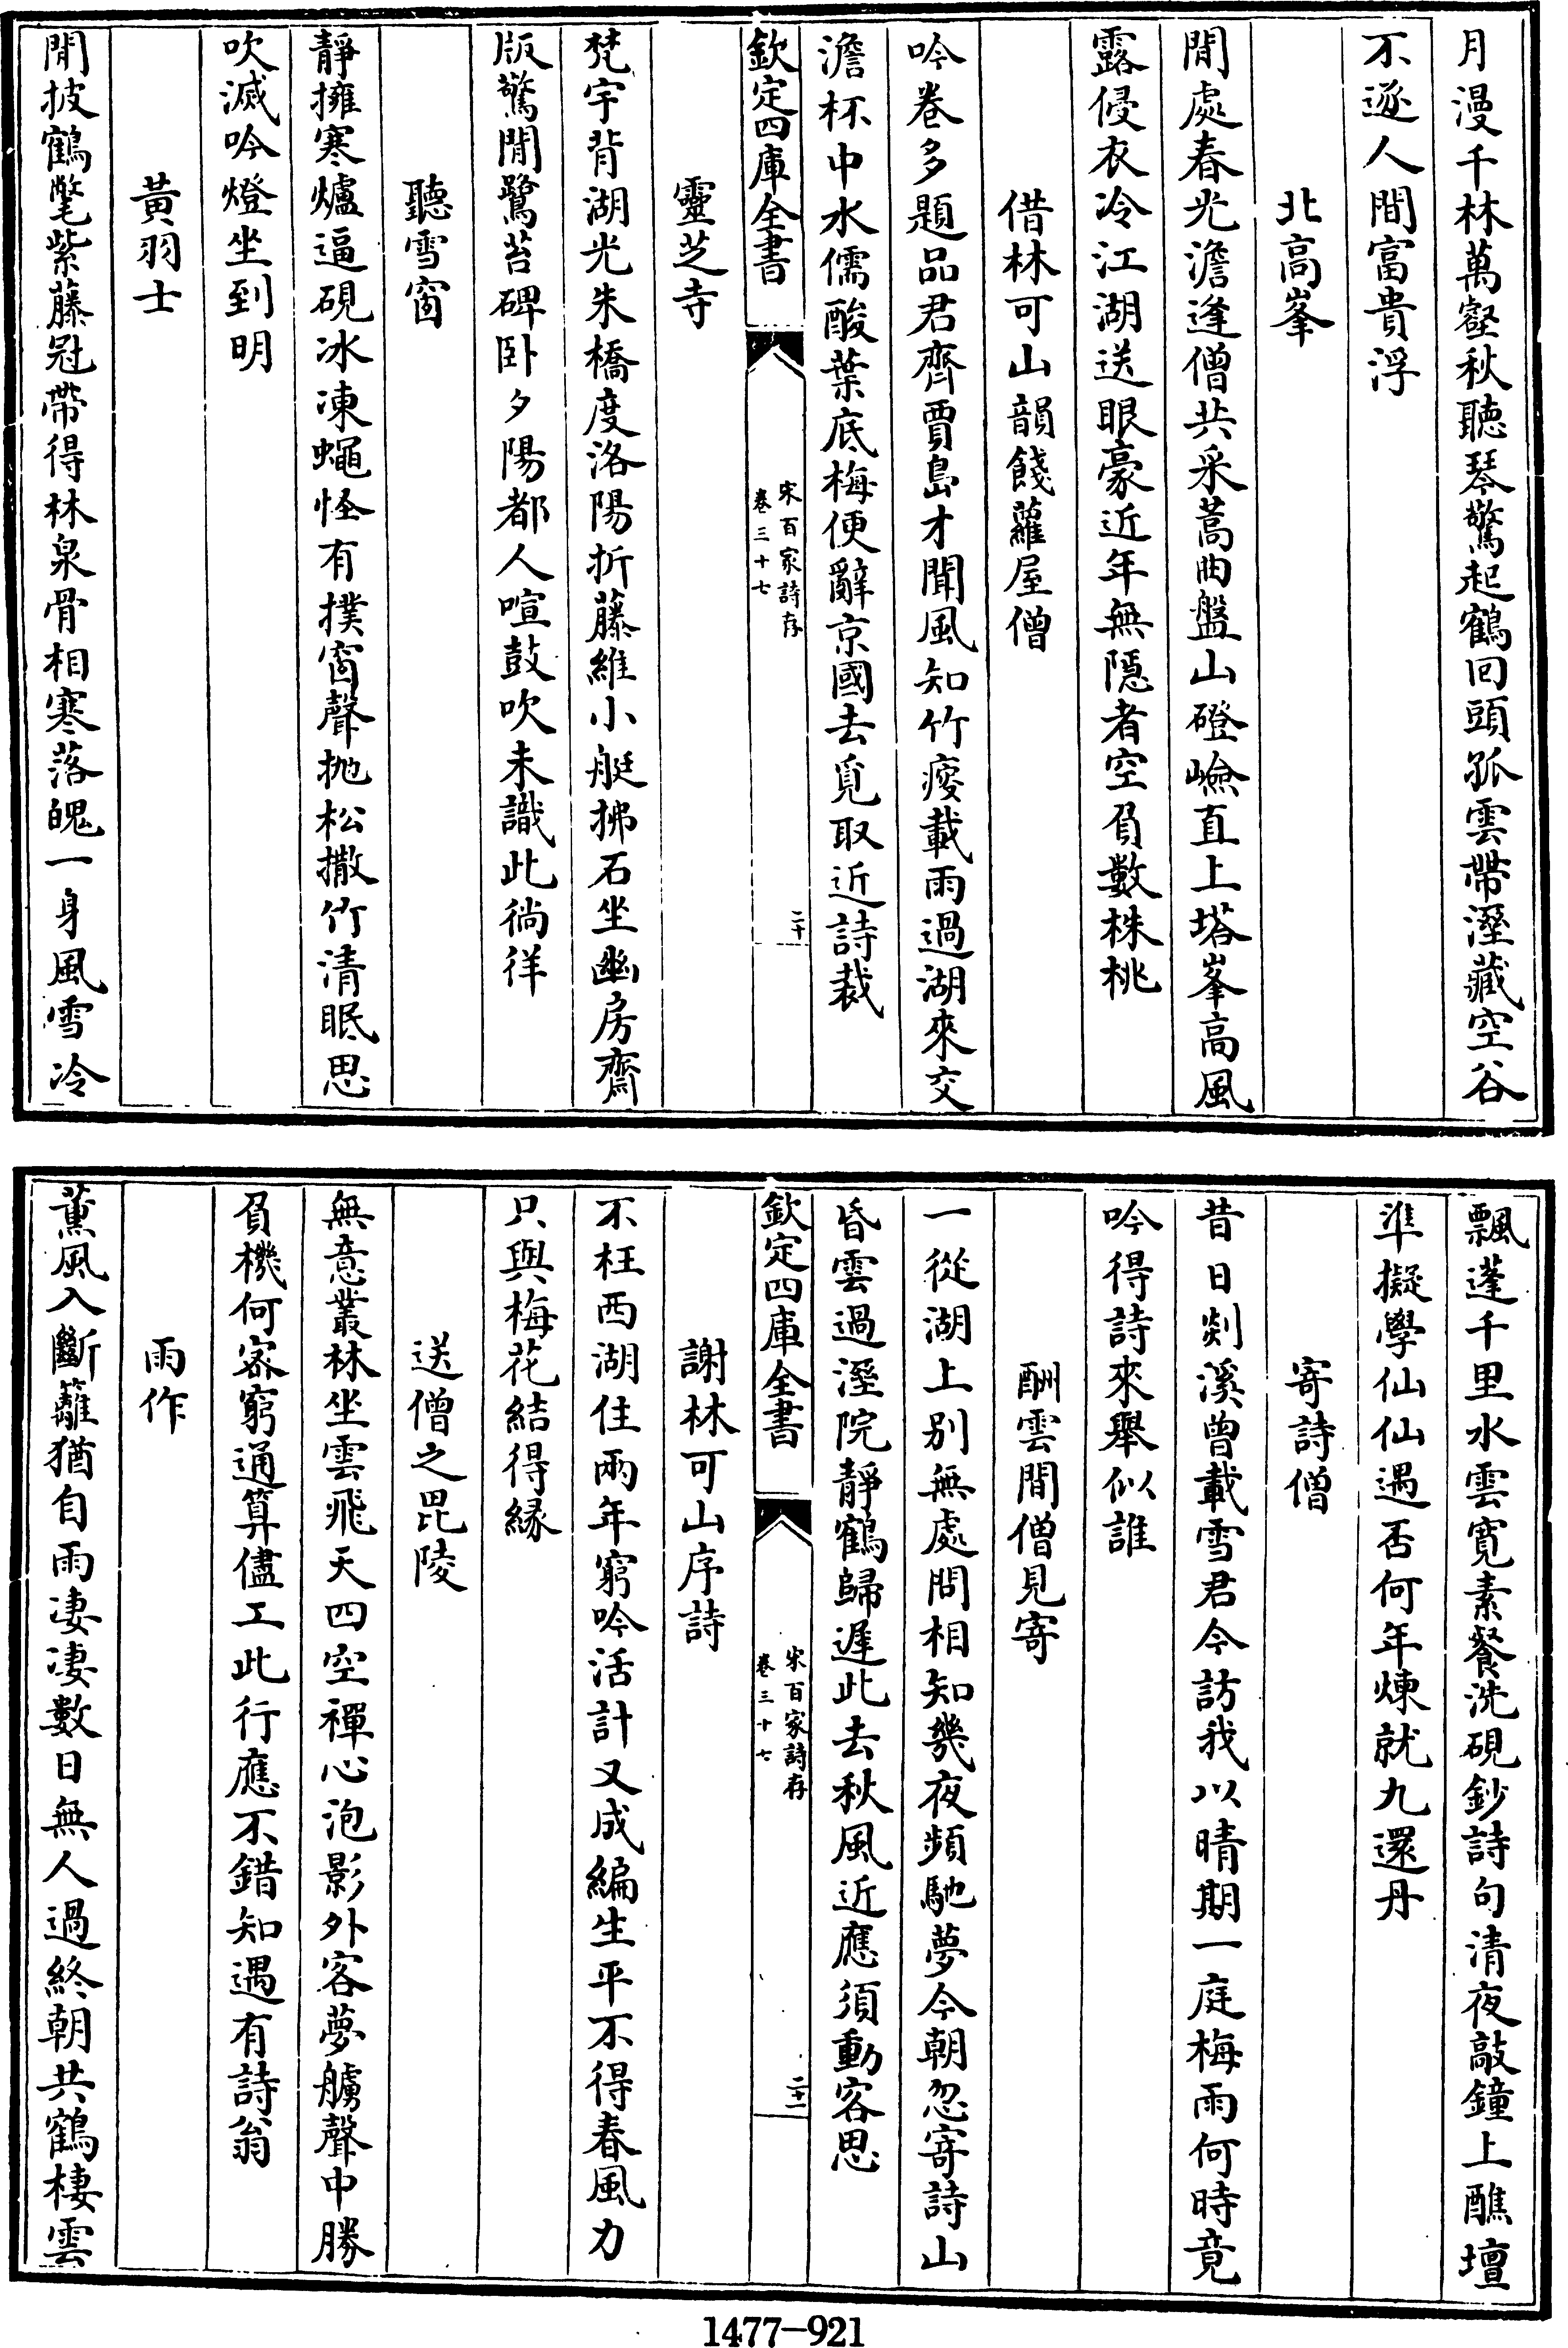 月漫千林萬壑秋聽琴驚起鶴回頭孤雲帶溼藏空谷
不逐人間富貴浮
北高峯
閒處春光澹逢僧共采蒿曲盤山磴嶮直上塔峯高風
露侵衣冷江湖送眼豪近年無隱者空負數株桃
借林可山韻餞蘿屋僧
吟卷多題品君齊賈島才聞風知竹瘦載雨過湖來交
澹杯中水儒酸葉底梅便辭京國去覓取近詩裁
欽定四庫全書
宋百家詩存
卷三十七
二十
靈芝寺
梵宇背湖光朱橋度洛陽折藤維小艇拂石坐幽房齋
版驚閒鷺苔碑卧夕陽都人喧鼓吹未識此徜徉
聽雪窗
靜擁寒爐逼硯冰凍蠅怪有撲窗聲拋松撒竹清眠思
吹滅吟燈坐到明
黃羽士
閒披鶴氅紫藤冠帶得林泉骨相寒落魄一身風雪冷
飄蓬千里水雲寬素餐洗硯鈔詩句清夜敲鐘上醮壇
準擬學仙仙遇否何年煉就九還丹
寄詩僧
昔日剡溪曾載雪君今訪我以晴期一庭梅雨何時竟
吟得詩來舉似誰
酬雲間僧見寄
一從湖上别無處問相知幾夜頻馳夢今朝忽寄詩山
昏雲過溼院靜鶴歸遲此去秋風近應須動客思
欽定四庫全書
宋百家詩存
卷三十七
二十一
謝林可山序詩
不枉西湖住兩年窮吟活計又成編生平不得春風力
只與梅花結得緣
送僧之毘陵
無意叢林坐雲飛天四空禪心泡影外客夢艣聲中勝
負機何密窮通算儘工此行應不錯知遇有詩翁
雨作
薰風入斷籬猶自雨凄凄數日無人過終朝共鶴棲雲
1477-921